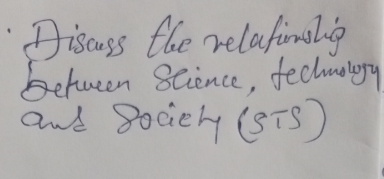 Discuss the relationship
between Science, technology
and Society (STS)